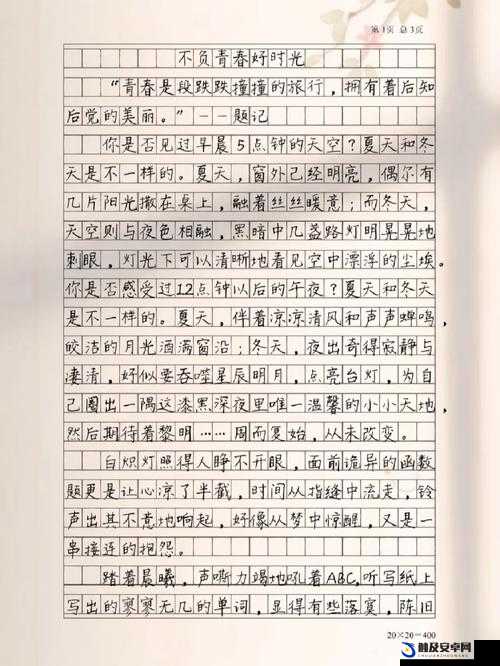 第1页 总3页
不负青春好时光
“青春是段跌跌撞撞的旅行，拥有着后知
后党的美丽。”——题记
你是否见过早晨5点钟的天空？夏天和冬
天是不一样的。夏天，窗外已经明亮，偶尔有
几片阳光撒在桌上，融着丝丝暖意；而冬天，
天空则与夜色相融，黑暗中几盏路灯明晃晃地
刺眼，灯光下可以清晰地看见空中漂浮的尘埃。
你是否感受过12点钟以后的午夜？夏天和冬天
是不一样的。夏天，伴着凉凉清风和声声蝉鸣，
皎洁的月光洒满窗沿；冬天，夜出奇得寂静与
凄清，好似要吞噬星辰明月，点亮台灯，为自
己圈出一隅这漆黑深夜里唯一温馨的小小天地，
然后期待着黎明……周而复始，从未改变。
白炽灯照得人睁不开眼，面前诡异的函数
题更是让心凉了半截，时间从指缝中流走，铃
声出其不意地响起，好像从梦中惊醒，又是一
串接连的抱怨。
踏着晨曦，声嘶力竭地吼着ABC，听写纸上
写出的寥寥无几的单词，显得有些落寞，陈旧
20×20=400
触及安卓网